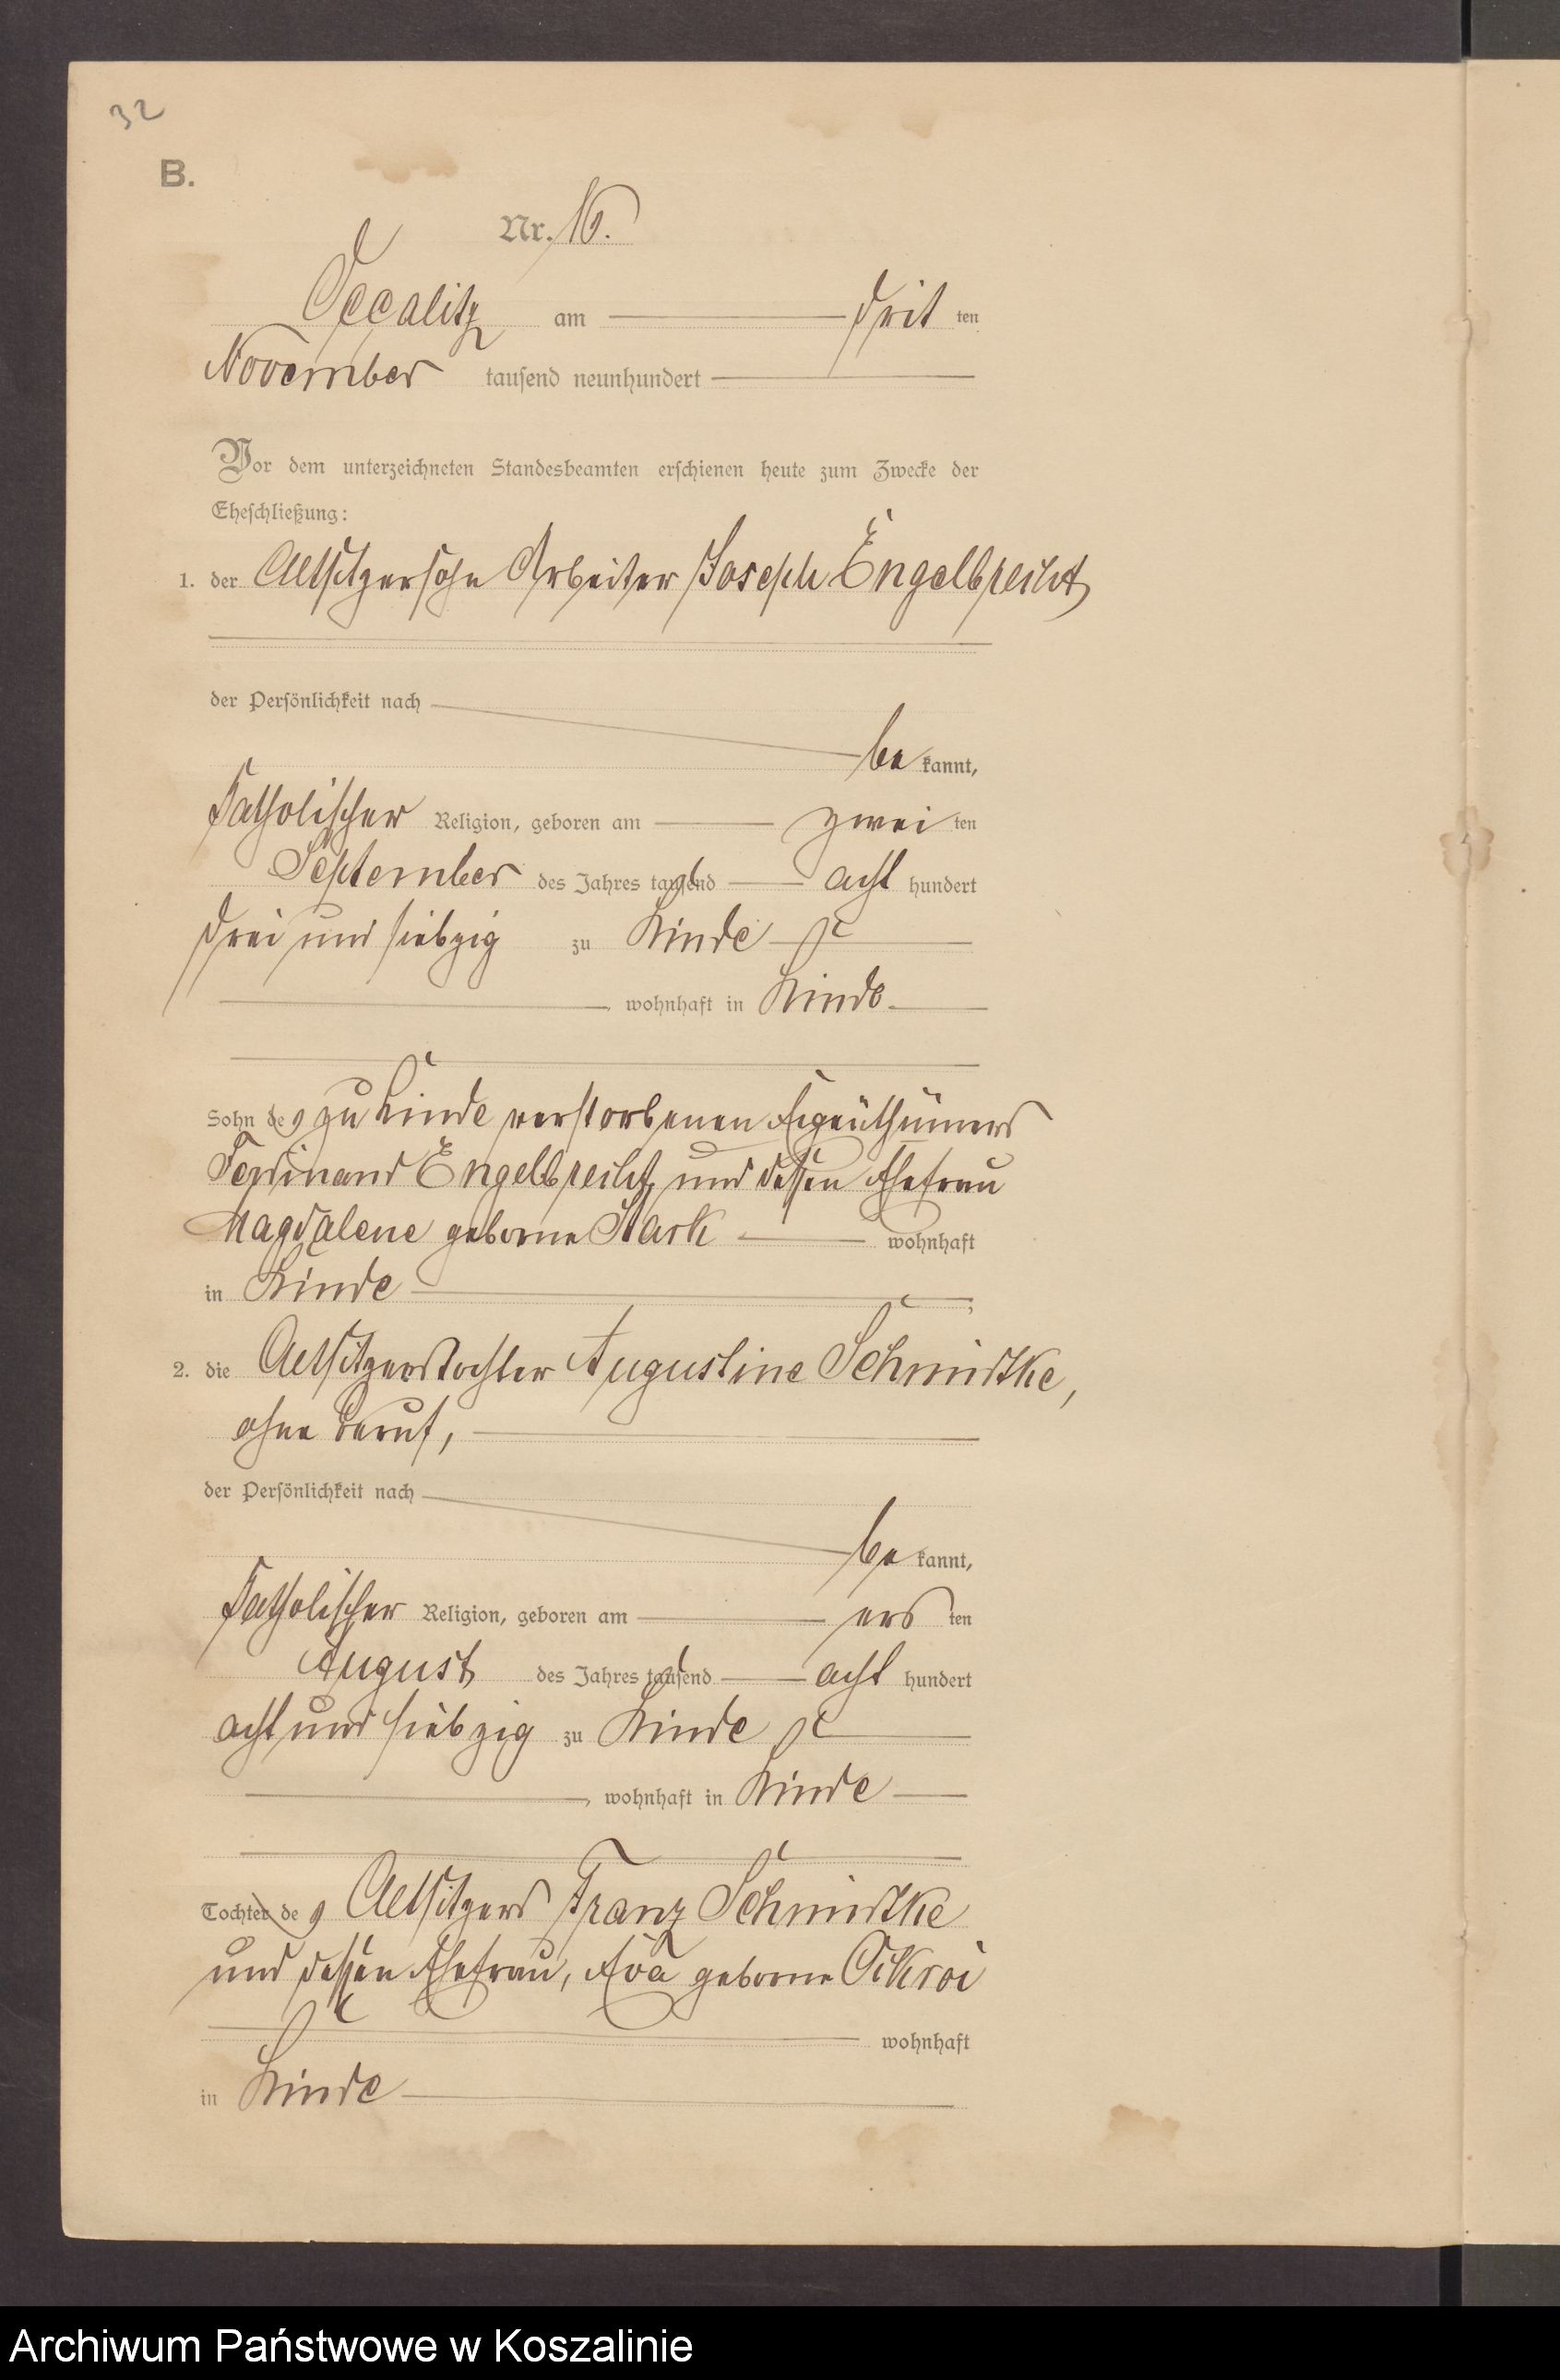 32
B.
Nr. 16.
Occalitz am drit ten
November tausend neunhundert
Vor dem unterzeichneten Standesbeamten erschienen heute zum Zwecke der
Eheschließung:
1. der Altsitzersohn Arbeiter Joseph Engelbrecht
der Persönlichkeit nach
be kannt,
katholischer Religion, geboren am zwei ten
September des Jahres tausend acht hundert
drei und siebzig zu Linde
wohnhaft in Linde
Sohn des zu Linde verstorbenen Eigenthümers
Ferdinand Engelbrecht und dessen Ehefrau
Magdalene geborne Stark wohnhaft
in Linde ;
2. die Altsitzerstochter Augustine Schmidtke,
ohne Beruf,
der Persönlichkeit nach
be kannt,
katholischer Religion, geboren am ers ten
August des Jahres tausend acht hundert
acht und siebzig zu Linde
, wohnhaft in Linde
Tochter des Altsitzers Franz Schmidtke
und dessen Ehefrau, Eva geborne
wohnhaft
in Linde
Archiwum Państwowe w Koszalinie